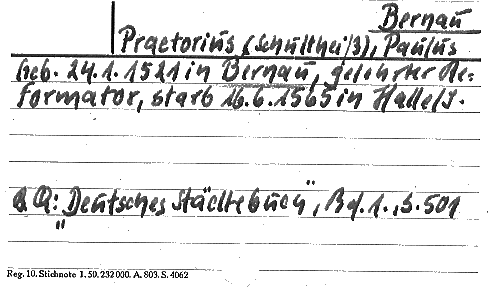 Bernau
Praetorius (Schultheiß), Paulus
Geb. 24.1.1521 in Bernau, gelehrter Re=
formator, starb 16.6.1565 in Halle/S.
QQ: Deutsches Städtebuch", Bd. 1., S. 501
"
Reg. 10. Stichnote 1. 50. 232000. A. 803. S. 4062